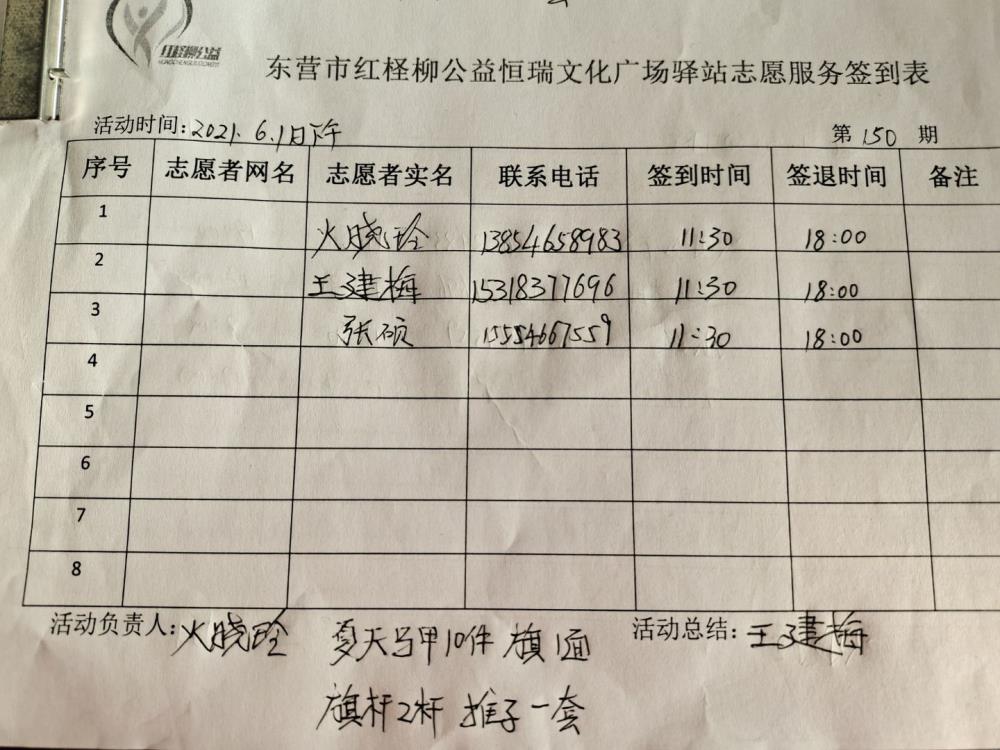 红柽柳公益
HONGCHENGLIUGONGYI
东营市红柽柳公益恒瑞文化广场驿站志愿服务签到表
活动时间:2021.6.1日下午 第150期
序号 志愿者网名 志愿者实名 联系电话 签到时间 签退时间 备注
1 火晓玲 13854658983 11:30 18:00
2 王建梅 15318377696 11:30 18:00
3 张硕 15554667559 11:30 18:00
4
5
6
7
8
活动负责人:火晓玲 夏天马甲10件 旗1面 活动总结:王建梅
旗杆2杆 推子一套